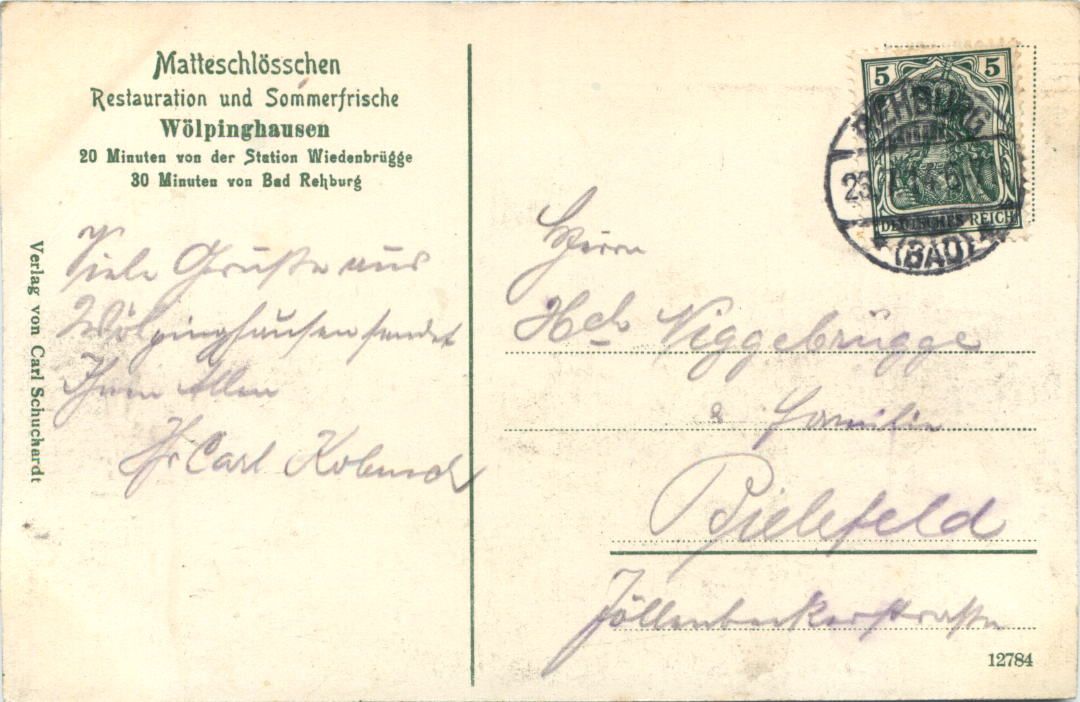 Matteschlösschen
Restauration und Sommerfrische
Wölpinghausen
20 Minuten von der Station Wiedenbrügge
30 Minuten von Bad Rehburg
Verlag von Carl Schuchardt
Viele Grüße aus
Wölpinghausen sendet
Ihnen Allen
Ihr Carl
5 5
DEUTSCHES REICH
REHBURG
23.7.14
(BAD)
Herrn
Niggebrügge
& Familie
Bielefeld
Jöllenbeckerstraße
12784